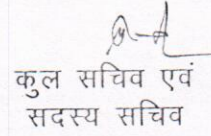 कुल सचिव एवं
सदस्य सचिव